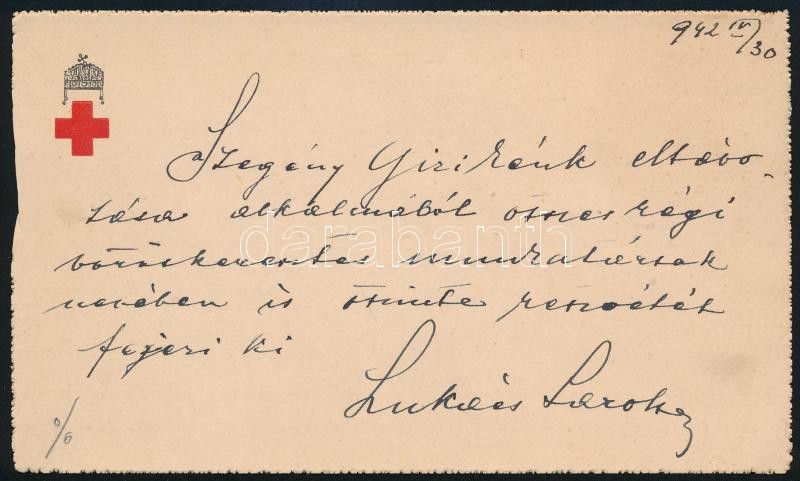 942 IV/30
Szegény Girikénk eltávo-
zása alkalmából összes régi
vöröskeresztes munkatársak
nevében is őszinte részvétét
fejezi ki
Lukács Sarolta
darabanth